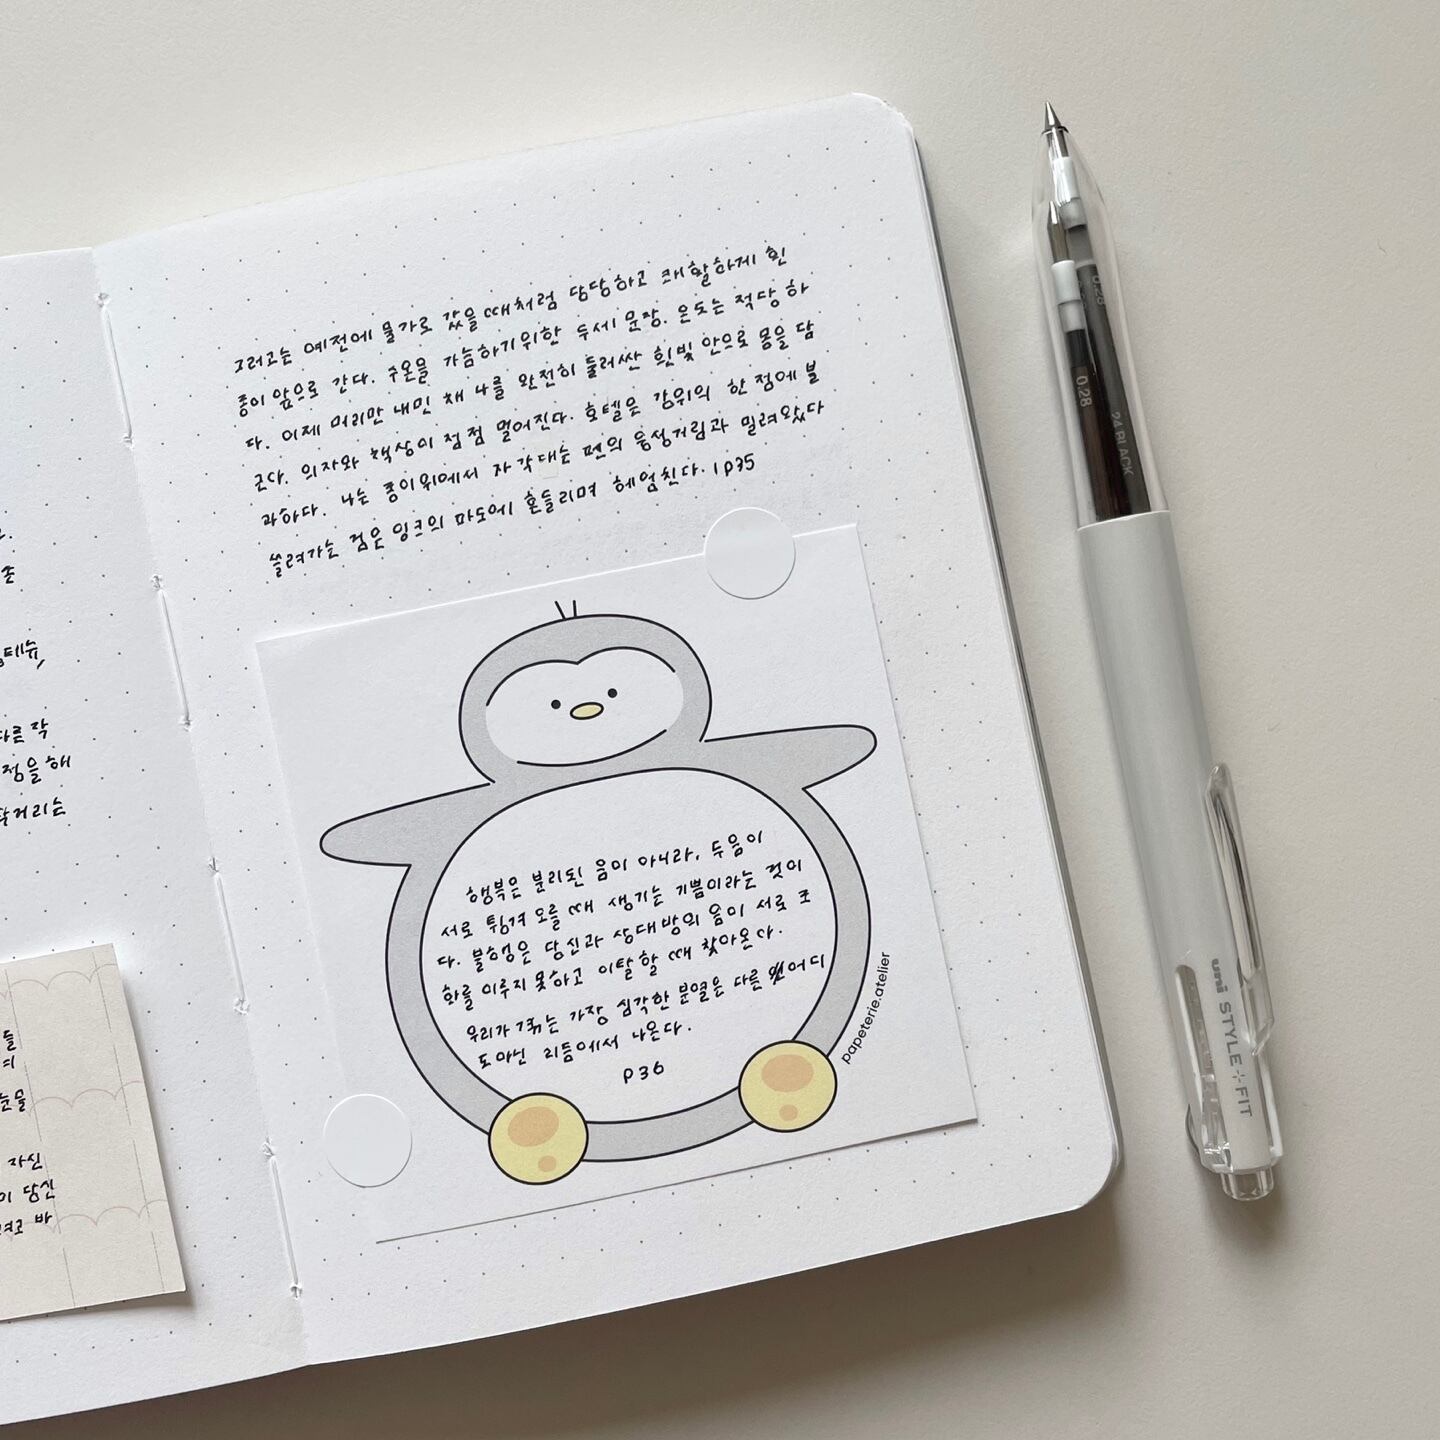 그러고는 예전에 물가로 갔을때처럼 당당하고 쾌활하게 흰
종이 앞으로 간다. 수온을 가늠하기위한 두세 문장. 온도는 적당하
다. 이제 머리만 내민 채 나를 완전히 둘러싼 흰빛 안으로 몸을 담
근다. 의자와 책상이 점점 멀어진다. 호텔은 강위의 한 점에 불
과하다. 나는 종이위에서 사각대는 펜의 웅성거림과 밀려왔다
쓸려가는 검은 잉크의 파도에 흔들리며 헤엄친다. 1p35
행복은 분리된 음이 아니라, 두음이
서로 튕겨 오를 때 생기는 기쁨이라는 것이
다. 불행은 당신과 상대방의 음이 서로 조
화를 이루지 못하고 이탈할 때 찾아온다.
우리가 겪는 가장 심각한 분열은 다른 어디
도아닌 리듬에서 나온다.
p36
papeterie.atelier
존
다른 작
점을 해
거리는
들
눈물
자신
이 당신
바
0.28
0.28
24 BLACK
uni STYLE FIT